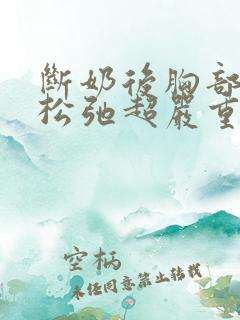 斷奶後胸部
松弛超嚴重
空柄
未经同意禁止转载